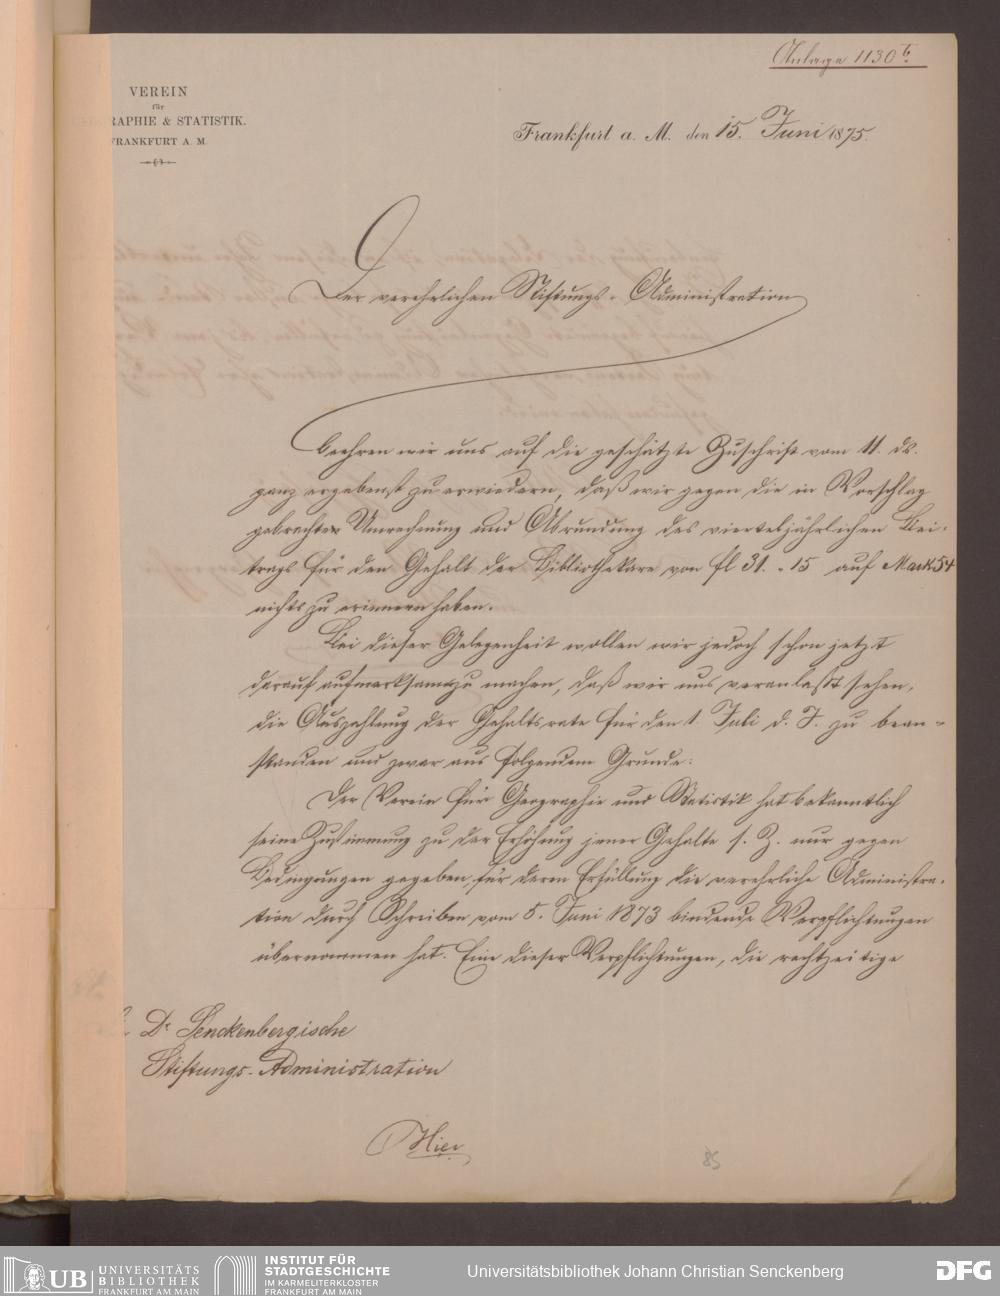 Anlage 1130 b.
VEREIN
für
GEOGRAPHIE & STATISTIK.
FRANKFURT A. M.
Frankfurt a. M. den 15. Juni 1875.
Der verehrlichen Stiftungs-Administration
beehren wir uns auf die geschätzte Zuschrift vom 11. ds.
ganz ergebenst zu erwiedern, daß wir gegen die in Vorschlag
gebrachte Umrechnung und Abrundung des vierteljährlichen Bei-
trags für den Gehalt der Bibliothekare von fl 31. - 15 auf Mark 54
nichts zu erinnern haben.
Bei dieser Gelegenheit wollen wir jedoch schon jetzt
darauf aufmerksam zu machen, daß wir uns veranlaßt sehen,
die Auszahlung der Gehaltsrate für den 1. Juli d. J. zu bean-
standen und zwar aus folgendem Grunde:
Der Verein für Geographie und Statistik hat bekanntlich
seine Zustimmung zu der Erhöhung jener Gehalte s. Z. nur gegen
Bedingungen gegeben, für deren Erfüllung die verehrliche Administra-
tion durch Schreiben vom 5. Juni 1873 bindende Verpflichtungen
übernommen hat. Eine dieser Verpflichtungen, die rechtzeitige
Dr. Senckenbergische
Stiftungs-Administration
Hier
85
UB UNIVERSITÄTS
BIBLIOTHEK
FRANKFURT AM MAIN
INSTITUT FÜR
STADTGESCHICHTE
IM KARMELITERKLOSTER
FRANKFURT AM MAIN
Universitätsbibliothek Johann Christian Senckenberg
DFG